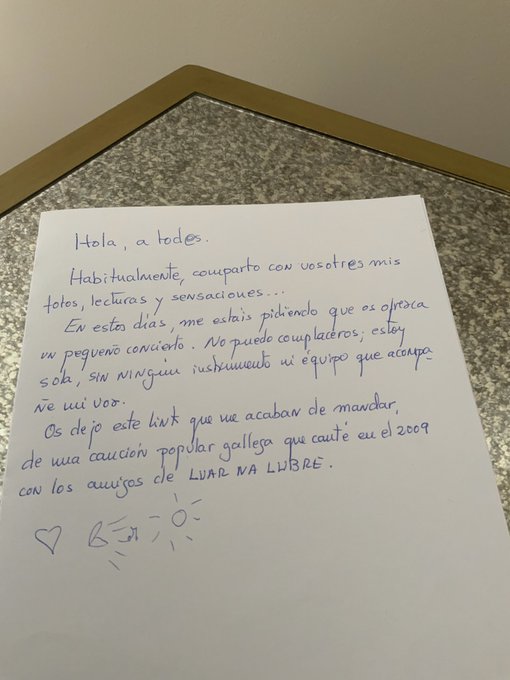 Hola, a tod@s.
Habitualmente, comparto con vosotr@s mis
fotos, lecturas y sensaciones...
En estos días, me estais pidiendo que os ofrezca
un pequeño concierto. No puedo complaceros; estoy
sola, SIN NINGÚN instrumento ni équipo que acompa
ñe mi voz.
Os dejo este link que me acaban de mandar,
de una canción popular gallega que canté en el 2009
con los amigos de LUAR NA LUBRE.